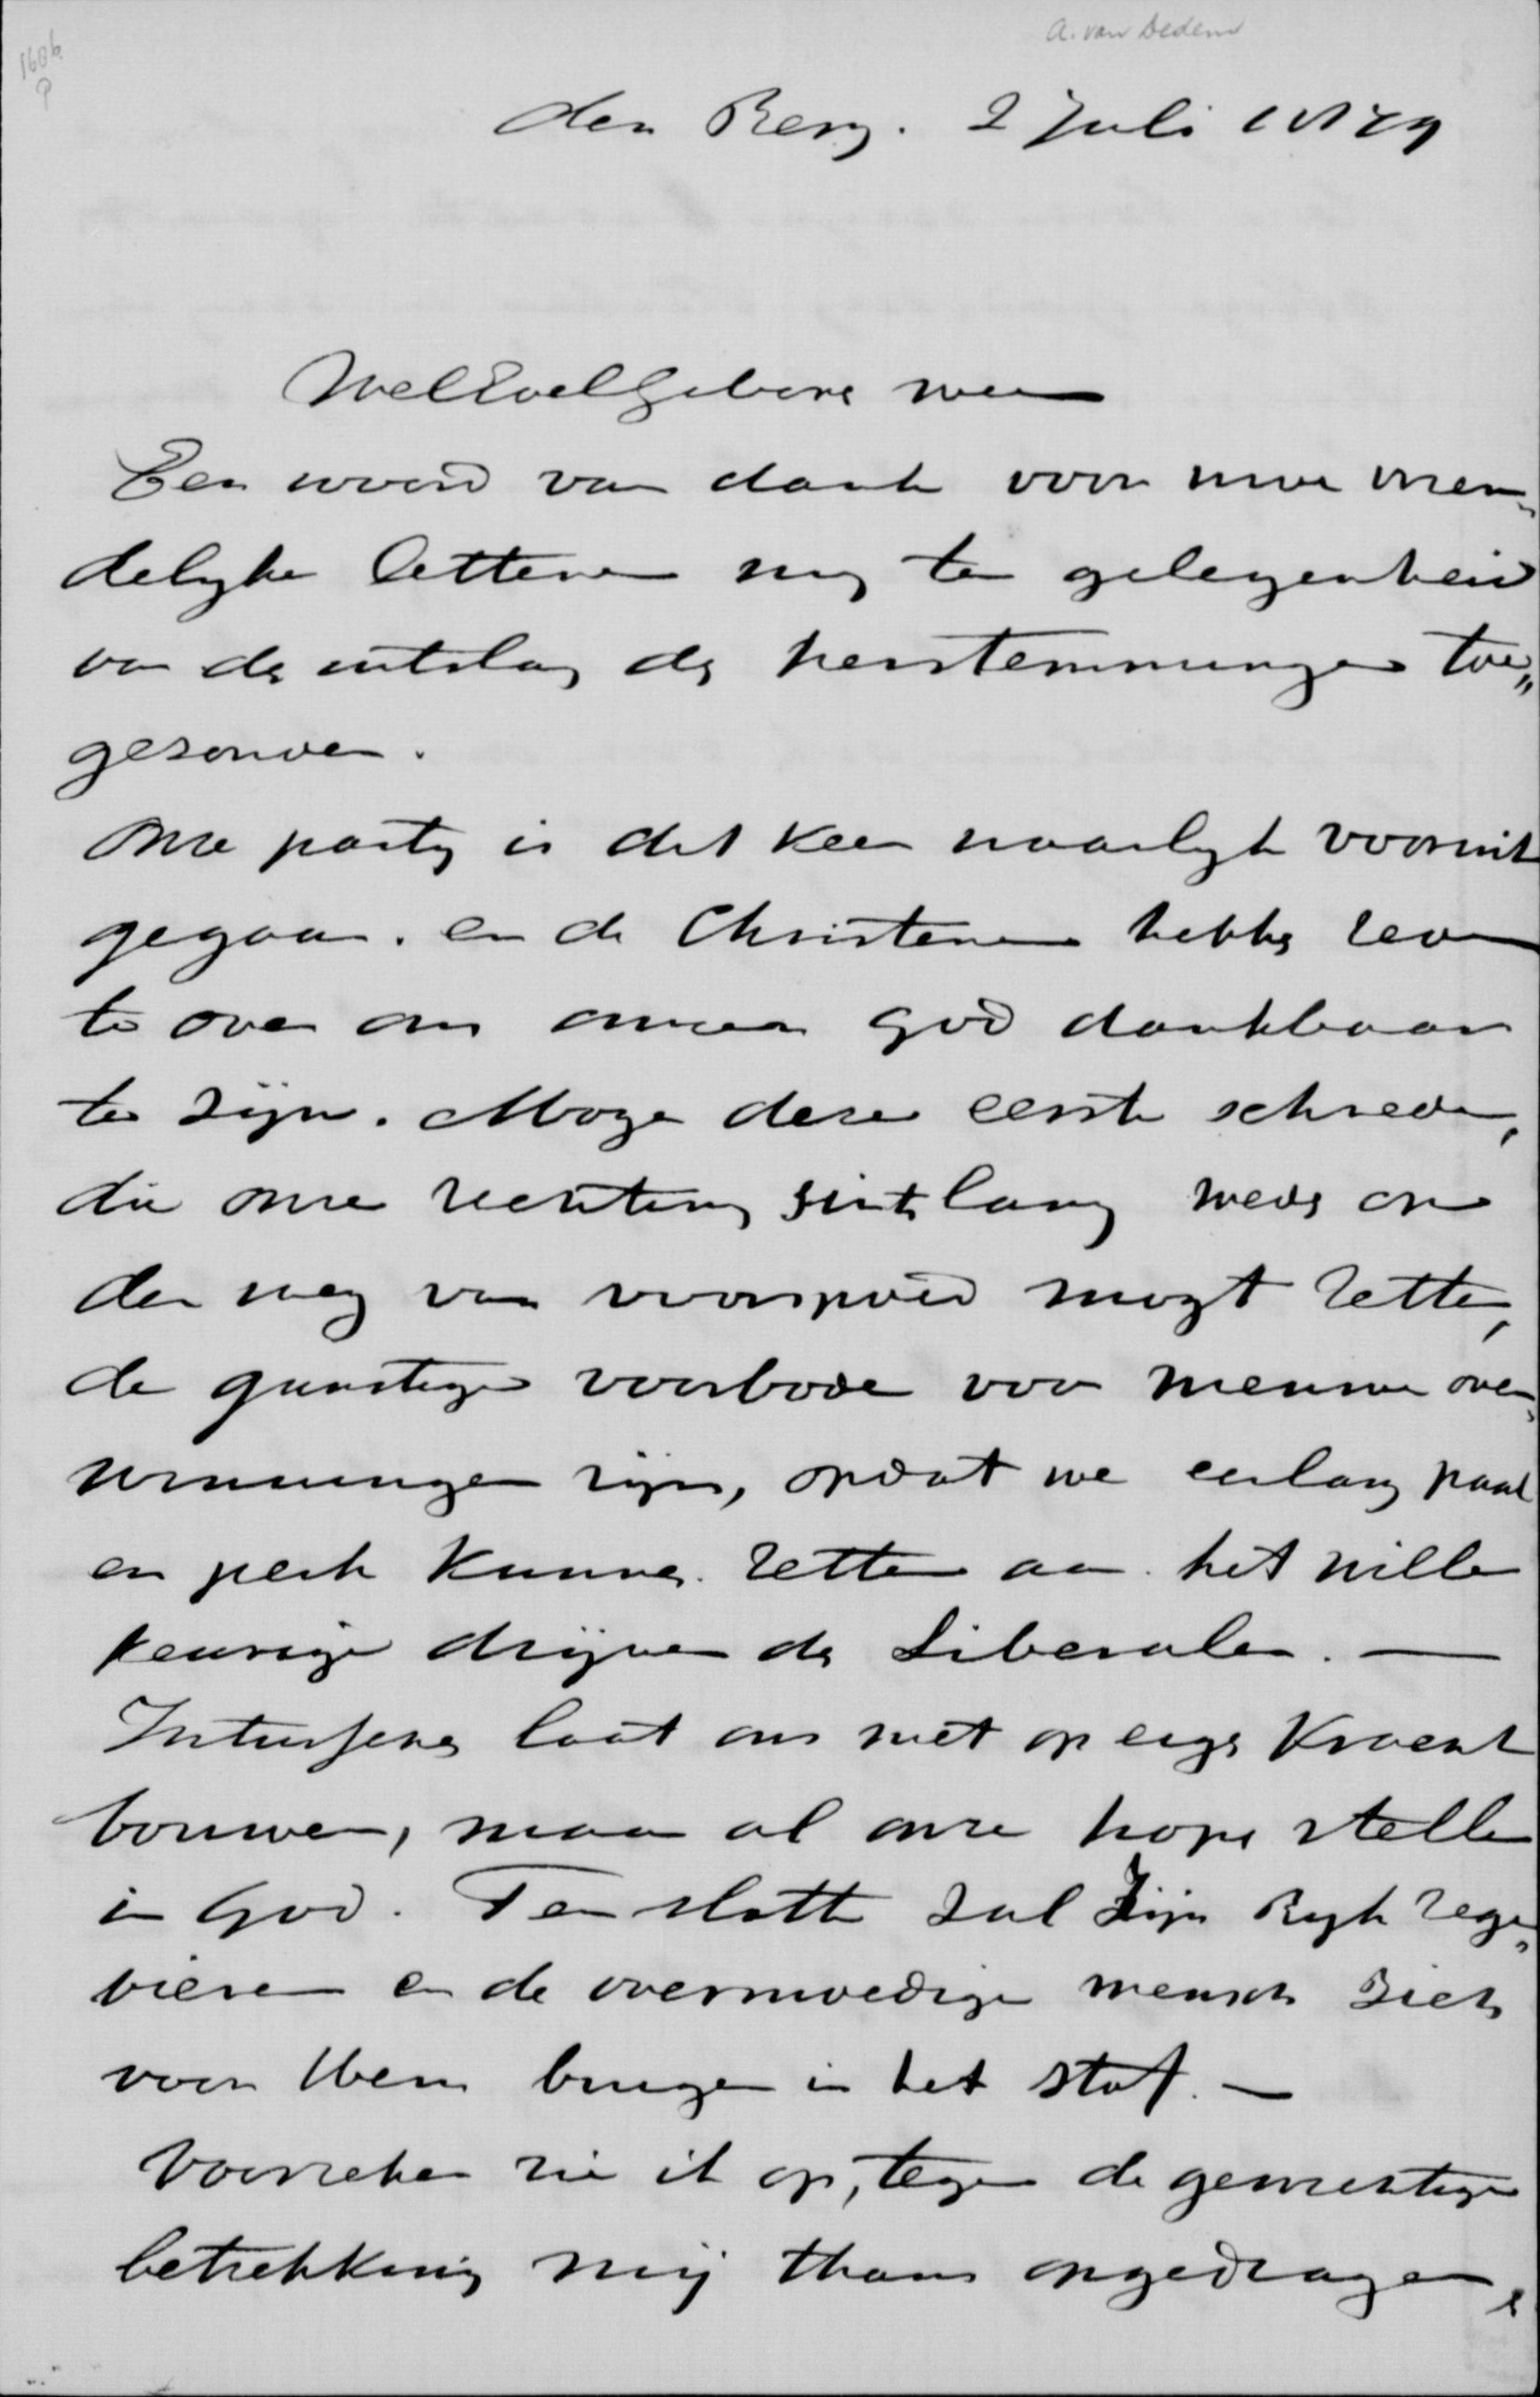 1606
A. van Dedem
den Berg. 2 Juli 1879
WelEdelGeboren
Een woord van dank voor uwe vrien„
delyke letteren my ter gelegenheid
van de uitslag der herstemmingen toe„
gezonden.
Onze party is dit keer waarlyk vooruit
gegaan. en de Christenen hebben reden
te over om onzen God dankbaar
te zijn. Moge deze eerste schrede,
die onze richting sints lang weder op
den weg van voorspoed mogt zetten,
de gunstige voorbode voor nieuwe over„
winningen zijn, opdat we eerlang paal
en perk kunnen zetten aan het wille
keurige drijven der Liberalen. —
Intusschen laat ons niet op eigen kracht
bouwen, maar al onze hope stellen
in God. Ten slotte zal Zijn Ryk zege„
vieren en de overmoedige mensch zich
voor Hem buigen in het stof. —
Voorzeker zie ik op, tegen de gewichtige
betrekking mij thans opgedragen,